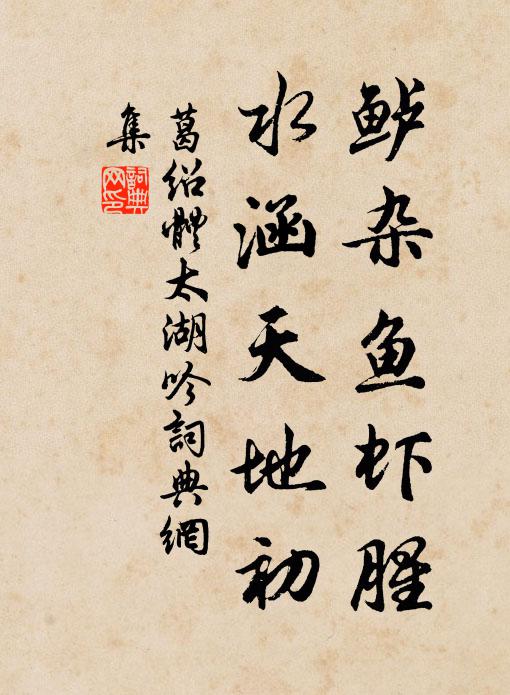 鲈杂鱼虾腥
水涵天地初
葛绍體太湖吟詞典網
集
詞典
网印